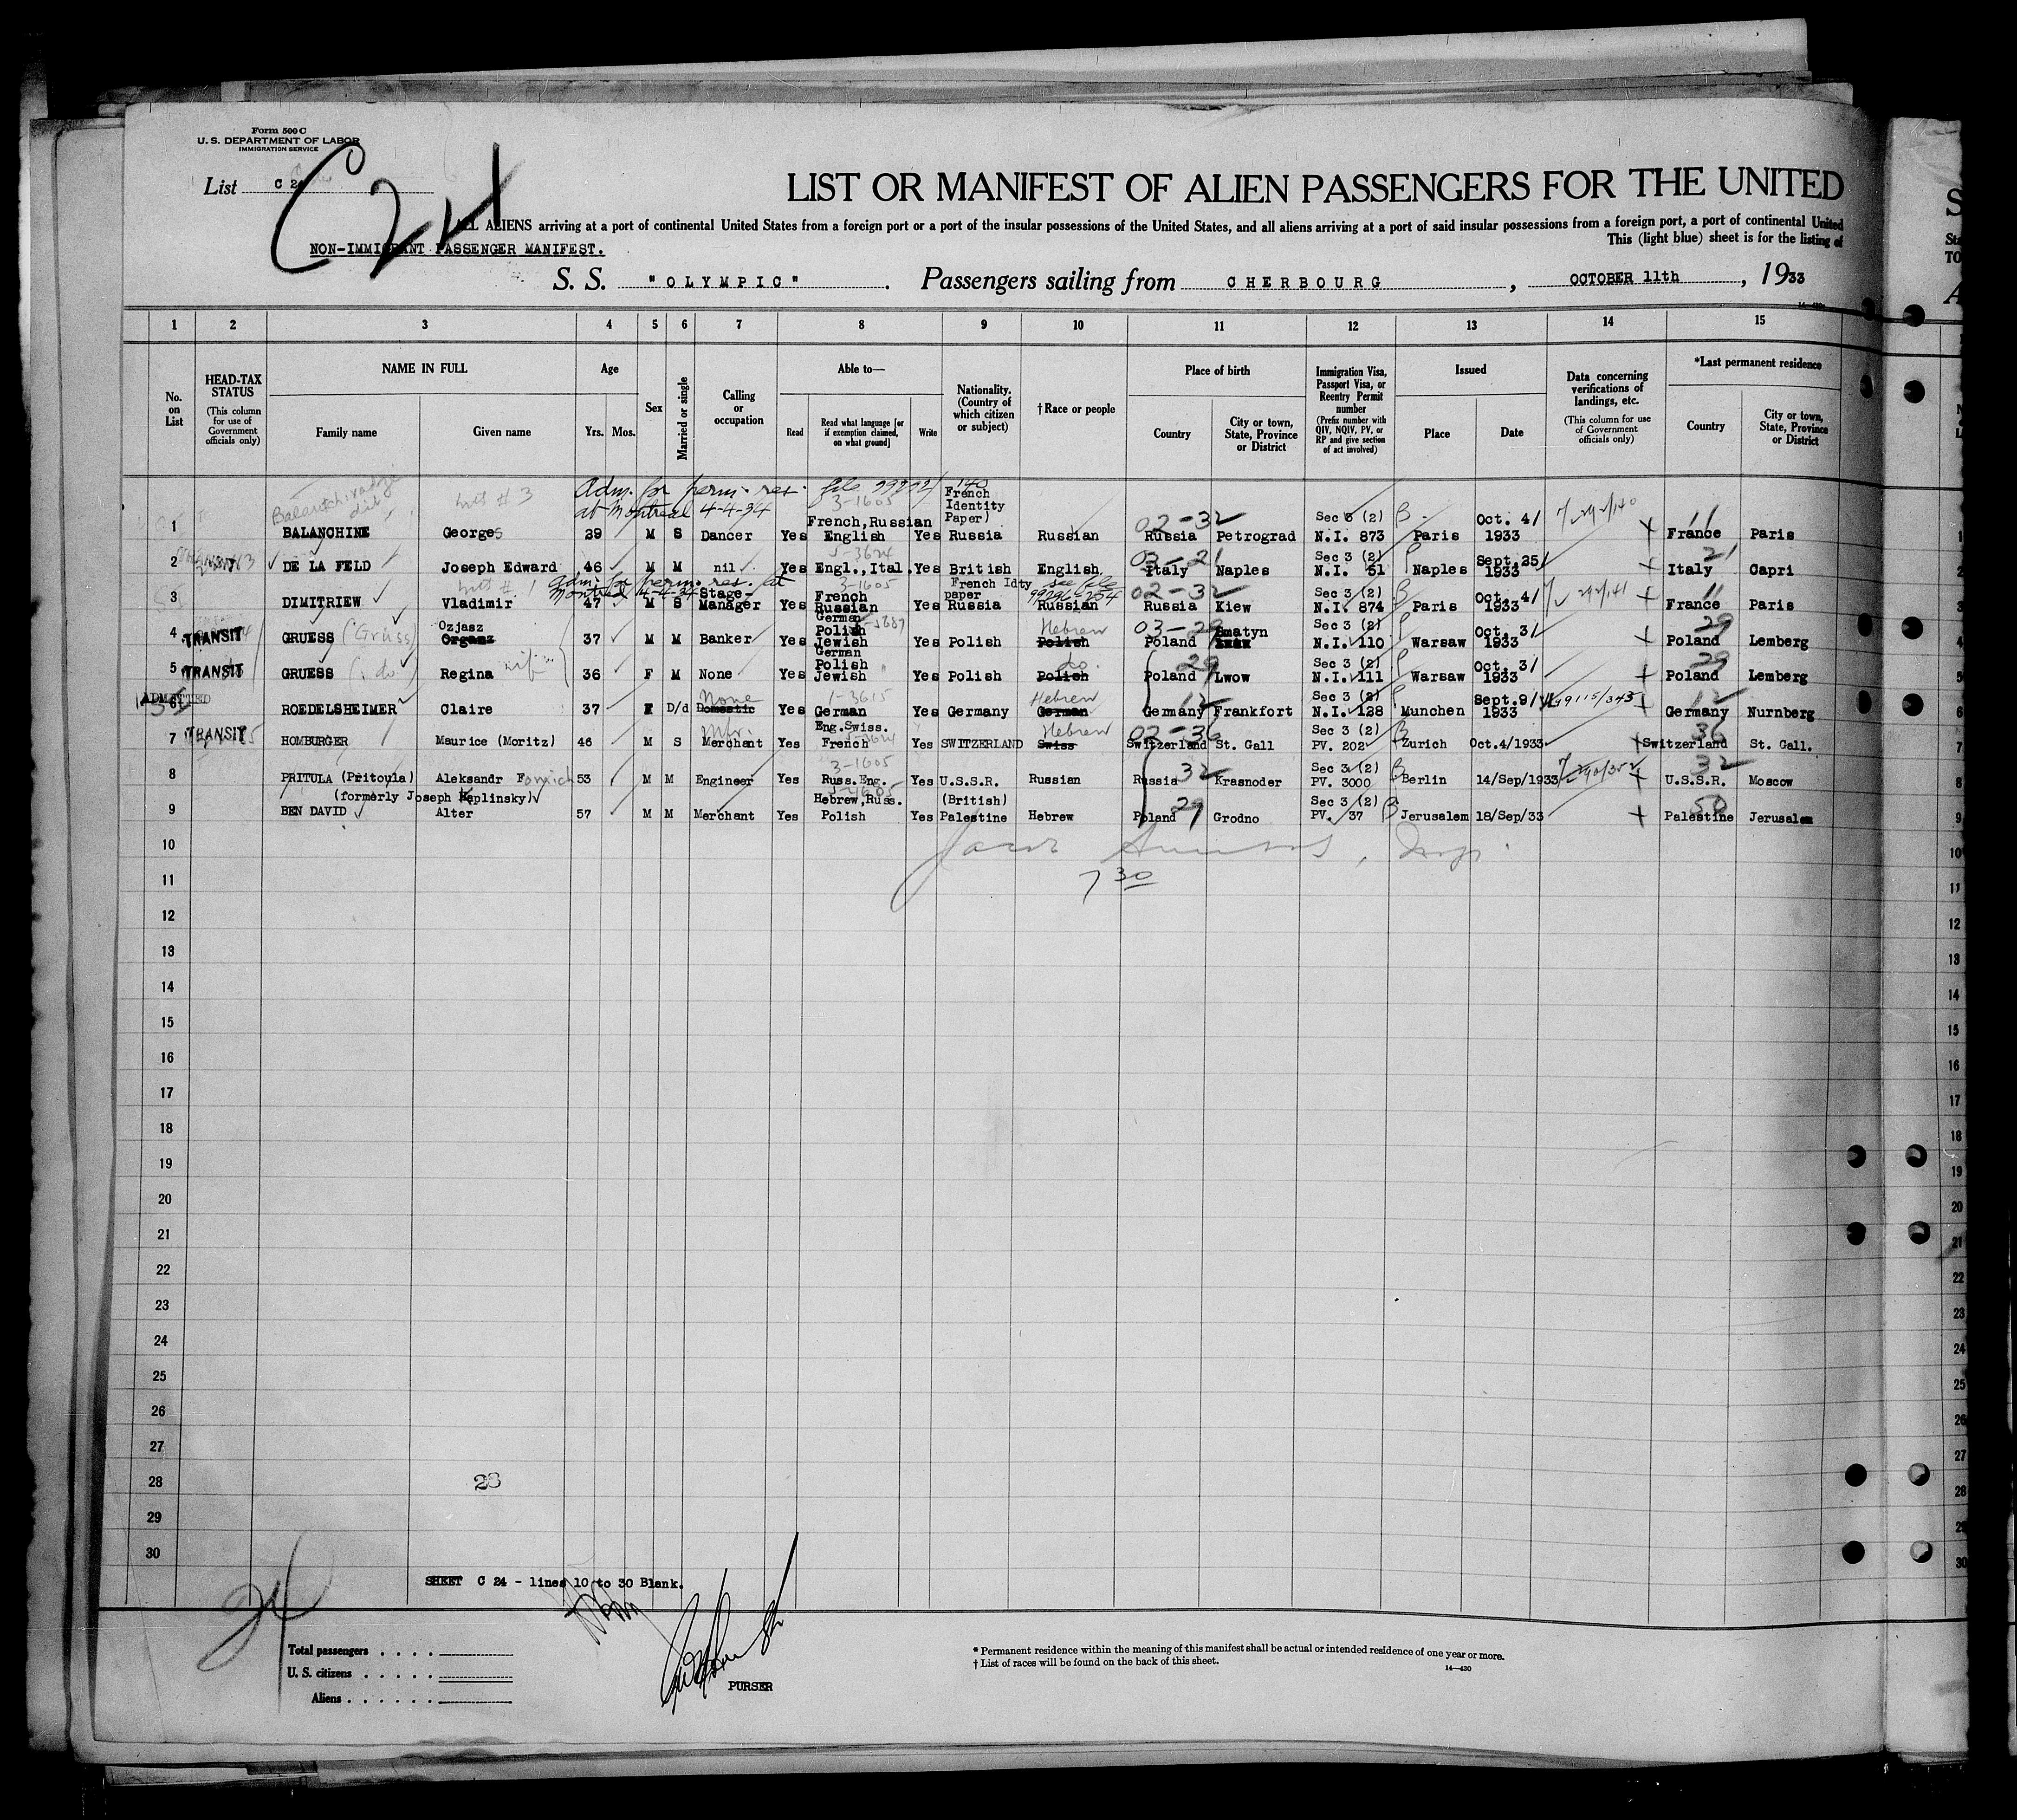 Form 500 C
U. S. DEPARTMENT OF LABOR
IMMIGRATION SERVICE
List C 24
C 24
LIST OR MANIFEST OF ALIEN PASSENGERS FOR THE UNITED
ALL ALIENS arriving at a port of continental United States from a foreign port or a port of the insular possessions of the United States, and all aliens arriving at a port of said insular possessions from a foreign port, a port of continental United
NON-IMMIGRANT PASSENGER MANIFEST. This (light blue) sheet is for the listing of
S. S. "OLYMPIC". Passengers sailing from CHERBOURG, OCTOBER 11th, 1933
1 2 3 4 5 6 7 8 9 10 11 12 13 14 15
No. on List
HEAD-TAX STATUS
(This column for use of Government officials only)
NAME IN FULL
Family name Given name
Age
Yrs. Mos.
Sex
Married or single
Calling or occupation
Able to—
Read Read what language [or if exemption claimed, on what ground] Write
Nationality. (Country of which citizen or subject)
†Race or people
Place of birth
Country City or town, State, Province or District
Immigration Visa, Passport Visa, or Reentry Permit number
(Prefix number with QIV, NQIV, PV, or RP and give section of act involved)
Issued
Place Date
Data concerning verifications of landings, etc.
(This column for use of Government officials only)
*Last permanent residence
Country City or town, State, Province or District
Adm. for perm. res. file
at Montreal 4-4-34 3-1605 French Identity Paper)
1 BALANCHINE Georges 29 M S Dancer Yes French, Russian English Yes Russia Russian 02-32 Russia Petrograd Sec 3 (2) N.I. 873 Paris Oct. 4/ 1933 11 France Paris
2 DE LA FELD Joseph Edward 46 M M nil Yes Engl., Ital. Yes British English 03-21 Italy Naples Sec 3 (2) N.I. 51 Naples Sept. 25/ 1933 21 Italy Capri
Adm. for perm. res. at Montreal 4-4-34 3-1605 French Idty paper see file
3 DIMITRIEW Vladimir 47 M S Stage-Manager Yes French Russian Yes Russia Russian 02-32 Russia Kiew Sec 3 (2) N.I. 874 Paris Oct. 4/ 1933 11 France Paris
4 TRANSIT GRUESS (Grüss) Ozjasz 37 M M Banker Yes German Polish Jewish Yes Polish Polish Hebrew 03-29 Poland Sec 3 (2) N.I. 110 Warsaw Oct. 3/ 1933 29 Poland Lemberg
5 TRANSIT GRUESS (do) Regina wife 36 F M None Yes German Polish Jewish Yes Polish Polish do. 29 Poland Lwow Sec 3 (2) N.I. 111 Warsaw Oct. 3/ 1933 29 Poland Lemberg
ADMITTED
6 ROEDELSHEIMER Claire 37 F D/d Domestic None Yes German Yes Germany German Hebrew 12 Germany Frankfort Sec 3 (2) N.I. 128 Munchen Sept. 9/ 1933 99115/343 12 Germany Nurnberg
7 TRANSIT HOMBURGER Maurice (Moritz) 46 M S Merchant Yes Eng. Swiss. French Yes SWITZERLAND Swiss Hebrew 02-36 Switzerland St. Gall Sec 3 (2) PV. 202 Zurich Oct.4/1933 36 Switzerland St. Gall.
8 PRITULA (Pritoula) Aleksandr Fomich 53 M M Engineer Yes 3-1605 Russ. Eng. Yes U.S.S.R. Russian 32 Russia Krasnoder Sec 3 (2) PV. 3000 Berlin 14/Sep/1933 32 U.S.S.R. Moscow
(formerly Joseph Keplinsky)
9 BEN DAVID Alter 57 M M Merchant Yes Hebrew, Russ. Polish Yes (British) Palestine Hebrew 29 Poland Grodno Sec 3 (2) PV. 37 Jerusalem 18/Sep/33 50 Palestine Jerusalem
10
11 7 30
12
13
14
15
16
17
18
19
20
21
22
23
24
25
26
27
28 23
29
30
SHEET C 24 - lines 10 to 30 Blank.
24
Total passengers
U. S. citizens
Aliens
PURSER
* Permanent residence within the meaning of this manifest shall be actual or intended residence of one year or more.
† List of races will be found on the back of this sheet.
14—430